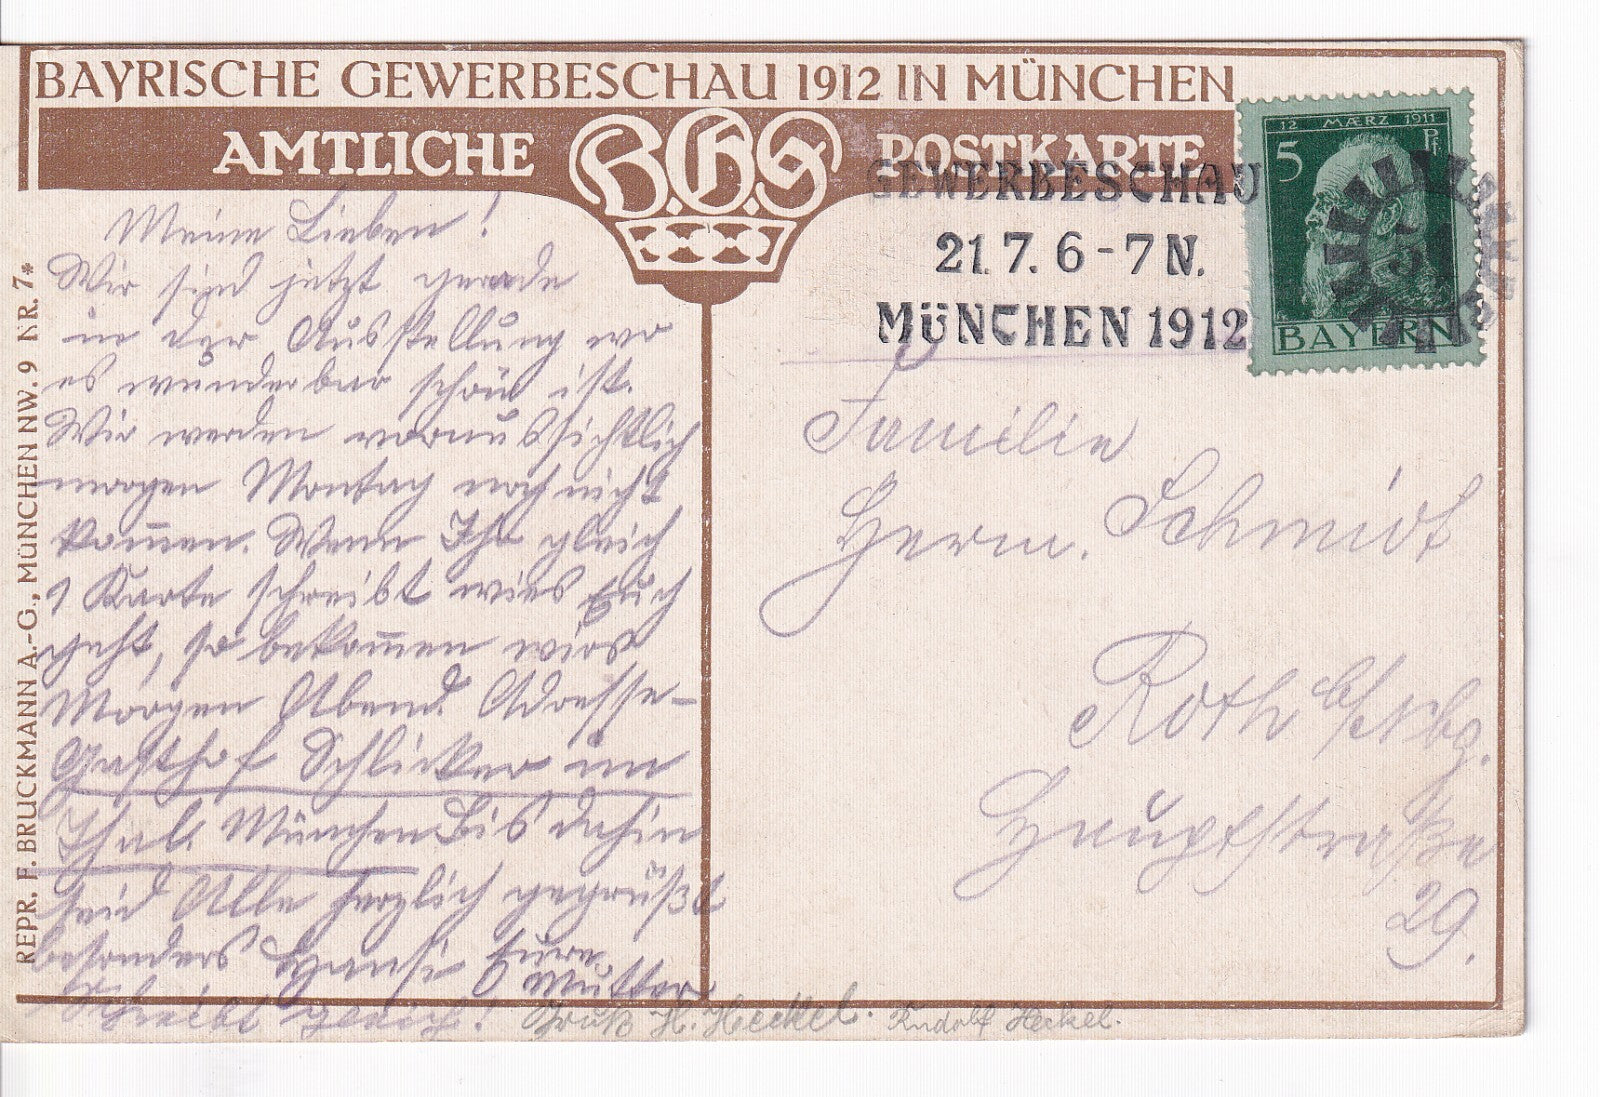 BAYRISCHE GEWERBESCHAU 1912 IN MÜNCHEN
AMTLICHE B.G.S POSTKARTE
GEWERBESCHAU
21.7. 6-7 N.
MÜNCHEN 1912
12 MÆRZ 1911
5 Pf
BAYERN
REPR. F. BRUCKMANN A.-G., MÜNCHEN NW. 9 NR. 7*
Meine Lieben!
Wir sind jetzt gerade
in der Ausstellung wo
es wunderbar schön ist.
Wir werden voraussichtlich
morgen Montag noch nicht
kom̅en. Wenn Ihr gleich
1 Karte schreibt wies Euch
geht, so bekom̅en wirs
Morgen Abend. Adresse-
Gasthof Schlicker im
Thal. München Bis dahin
seid Alle herzlich gegrüßt
besonders Hansi Eure
Mutter
Schreibt gleich!
Gruß H. Heckel. Rudolf Heckel.
Familie
Herm. Schmidt
Roth b/Nbg.
Hauptstraße
29.